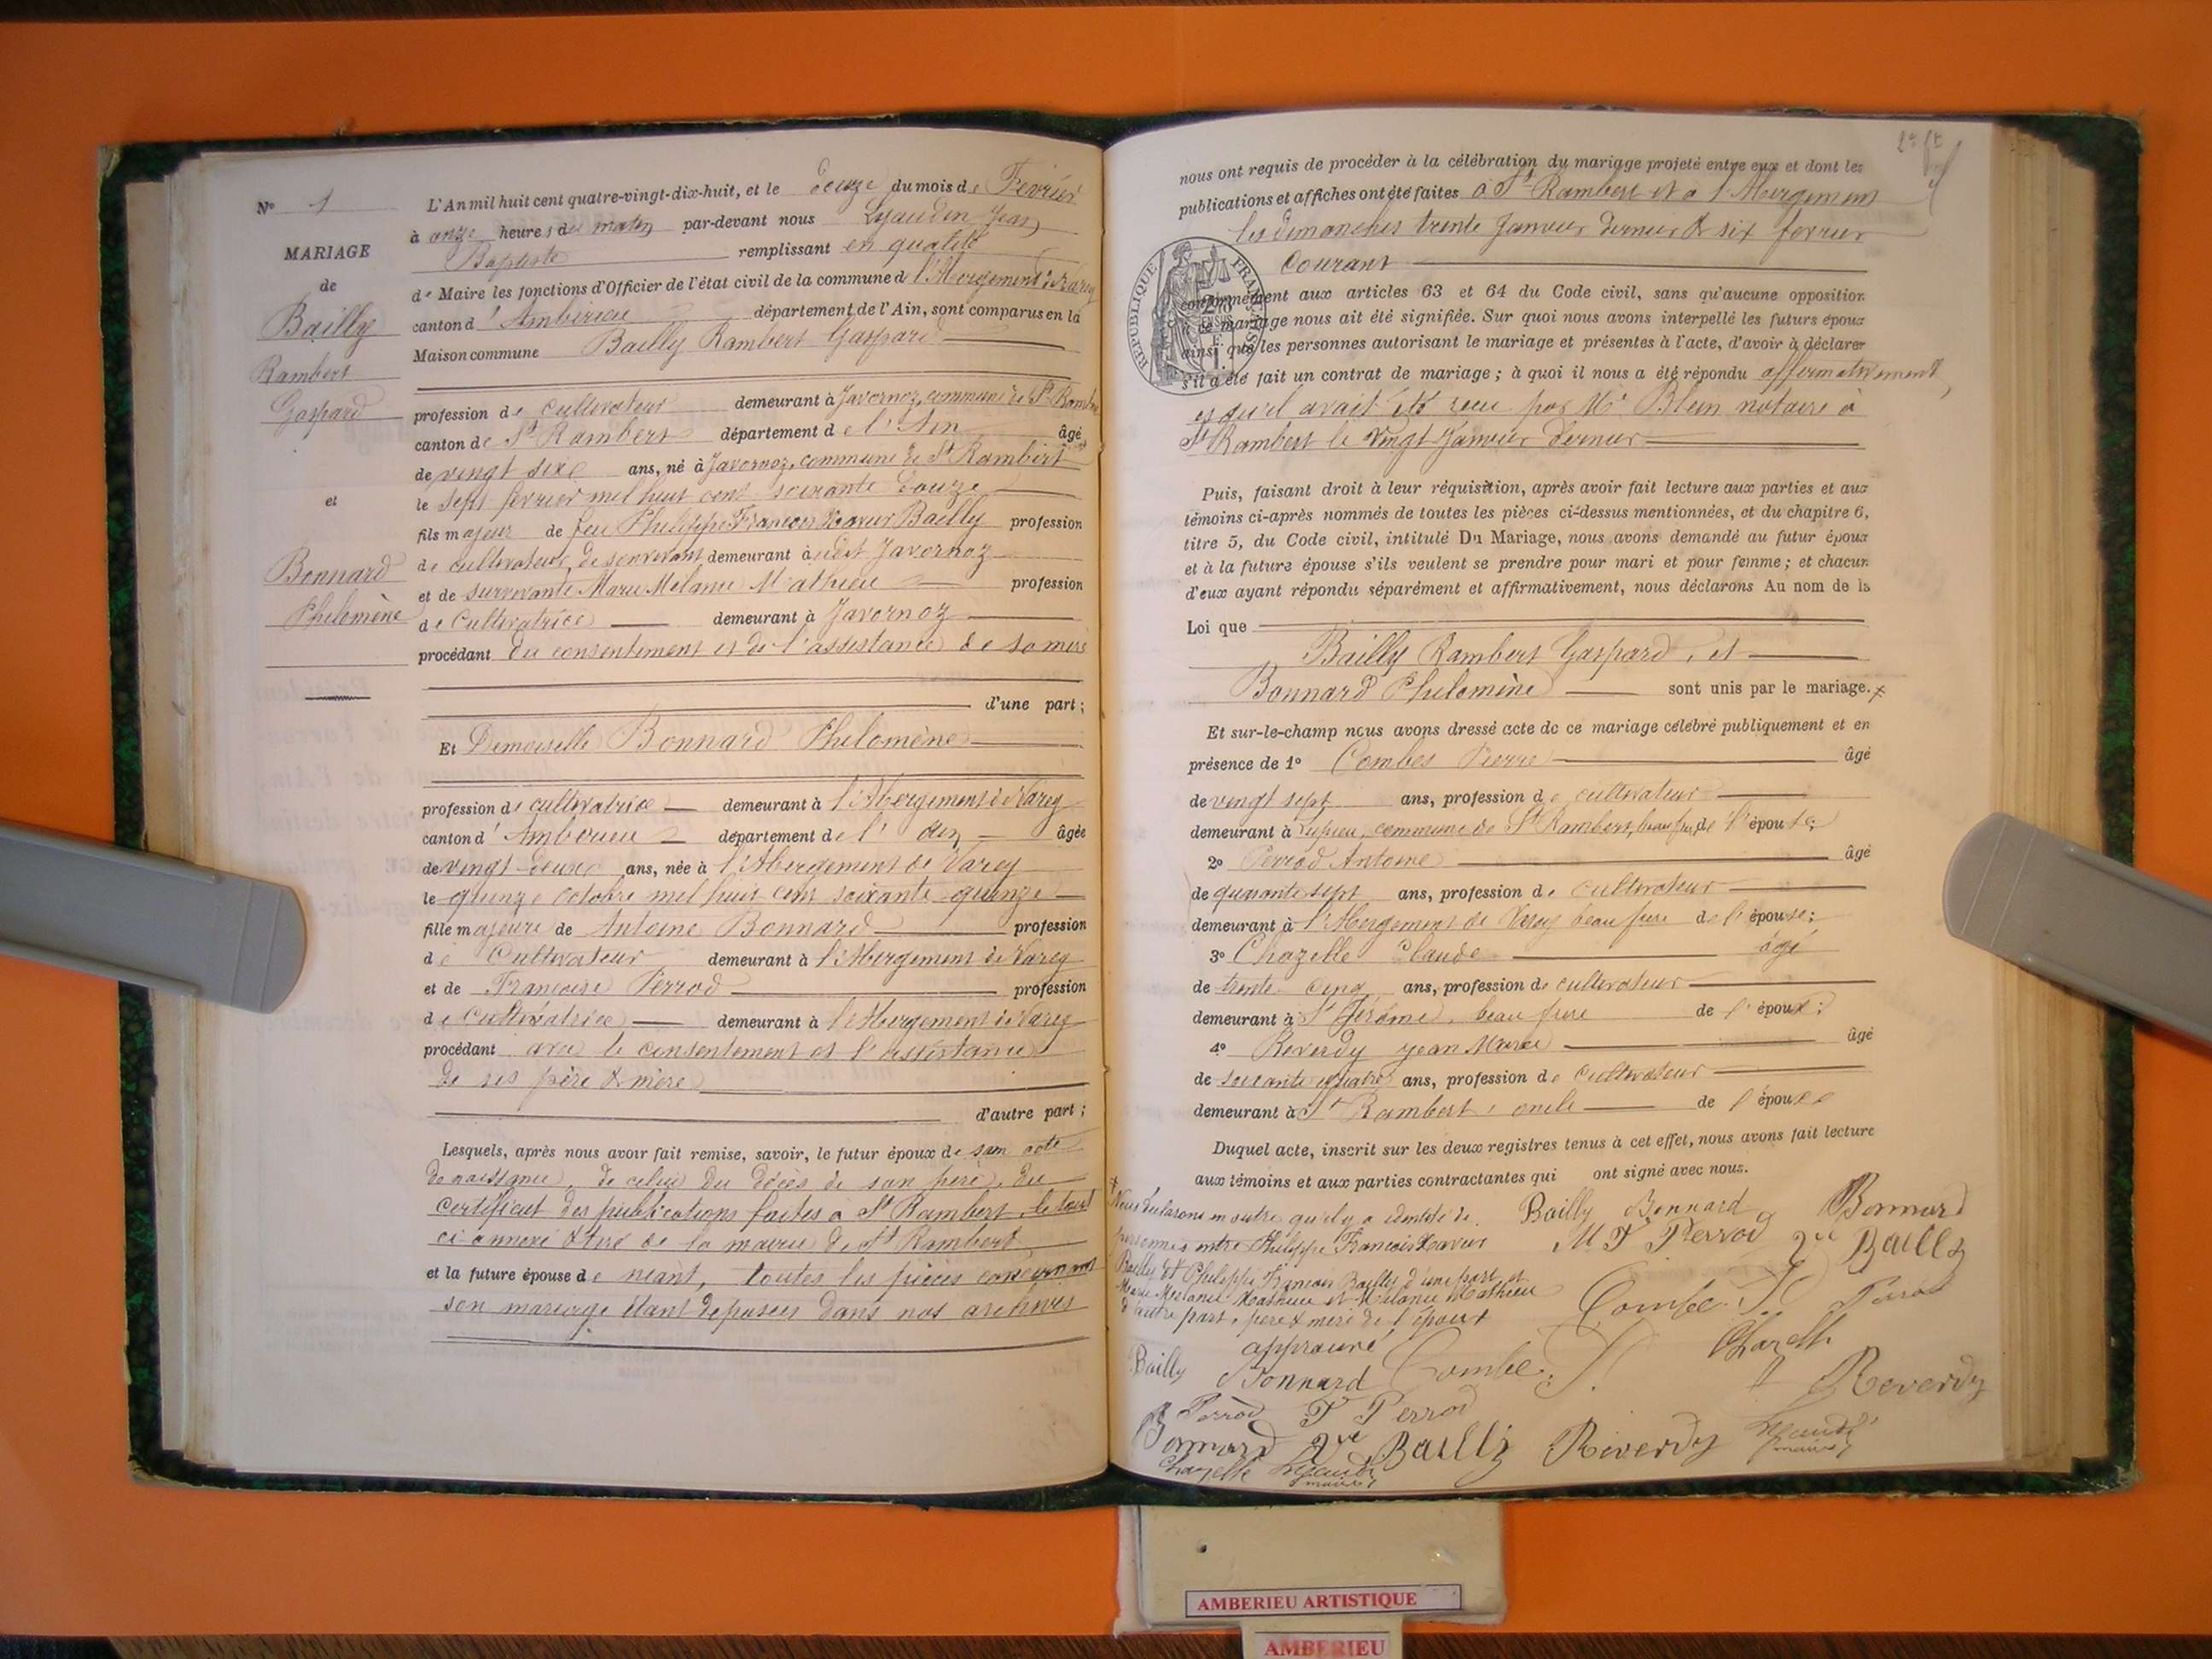 N° 1
MARIAGE
de
Bailly
Rambert
Gaspard
et
Bonnard
Philomène
L'An mil huit cent quatre-vingt-dix-huit, et le douze du mois de Fevrier
à onze heures du matin par-devant nous Lyaudin Jean
Baptiste remplissant en qualité
de Maire les fonctions d'Officier de l'état civil de la commune d l'Abergement de Varey
canton d'Ambérieu département de l'Ain, sont comparus en la
Maison commune Bailly Rambert Gaspard
profession de cultivateur demeurant à Javornoz, commune de St Rambert
canton de St Rambert département de l'Ain âgé
de vingt six ans, né à Javornoz, commune de St Rambert
le sept fevrier mil huit cent soixante douze
fils majeur de feu Philippe François Xavier Bailly profession
de cultivateur, de son vivant demeurant audit Javornoz
et de survivante Marie Melanie Mathieu profession
de Cultivatrice demeurant à Javornoz
procédant du consentement et de l'assistance de sa mère
d'une part ;
Et Demoiselle Bonnard Philomène
profession de cultivatrice demeurant à l'Abergement de Varey
canton d'Ambérieu département de l'Ain âgée
de vingt deux ans, née à l'Abergement de Varey
le quinze octobre mil huit cent soixante quinze
fille majeure de Antoine Bonnard profession
de Cultivateur demeurant à l'Abergement de Varey
et de Françoise Perrod profession
de Cultivatrice demeurant à l'Abergement de Varey
procédant avec le consentement et l'assistance
de ses père & mère
d'autre part ;
Lesquels, après nous avoir fait remise, savoir, le futur époux de son acte
de naissance, de celui du décès de son père, du
certificat des publications faites à St Rambert, le tout
ci annexé & tiré de la mairie de St Rambert
et la future épouse de néant, toutes les pièces concernant
son mariage étant déposées dans nos archives
nous ont requis de procéder à la célébration du mariage projeté entre eux et dont les
publications et affiches ont été faites à St Rambert et à l'Abergement
les dimanches trente Janvier dernier & six fevrier
courant
RÉPUBLIQUE FRANÇAISE
conformément aux articles 63 et 64 du Code civil, sans qu'aucune opposition
à ce mariage nous ait été signifiée. Sur quoi nous avons interpellé les futurs époux
ainsi que les personnes autorisant le mariage et présentes à l'acte, d'avoir à déclarer
s'il a été fait un contrat de mariage ; à quoi il nous a été répondu affirmativement,
et qu'il avait été reçu par Me Blein notaire à
St Rambert le vingt Janvier dernier
Puis, faisant droit à leur réquisition, après avoir fait lecture aux parties et aux
témoins ci-après nommés de toutes les pièces ci-dessus mentionnées, et du chapitre 6,
titre 5, du Code civil, intitulé Du Mariage, nous avons demandé au futur époux
et à la future épouse s'ils veulent se prendre pour mari et pour femme ; et chacun
d'eux ayant répondu séparément et affirmativement, nous déclarons Au nom de la
Loi que
Bailly Rambert Gaspard, et
Bonnard Philomène sont unis par le mariage. x
Et sur-le-champ nous avons dressé acte de ce mariage célébré publiquement et en
présence de 1° Combes Pierre âgé
de vingt sept ans, profession de cultivateur
demeurant à Lupieu, commune de St Rambert, beau frère de l'épouse;
2° Perrod Antoine âgé
de quarante sept ans, profession de cultivateur
demeurant à l'Abergement de Varey beau frère de l'épouse;
3° Chazelle Claude âgé
de trente cinq ans, profession de cultivateur
demeurant à St Jérôme, beau frère de l'époux;
4° Reverdy Jean Marie âgé
de soixante quatre ans, profession de cultivateur
demeurant à St Rambert, oncle de l'épouse
Duquel acte, inscrit sur les deux registres tenus à cet effet, nous avons fait lecture
aux témoins et aux parties contractantes qui ont signé avec nous.
x Nous déclarons en outre qu'il y a identité de
personnes entre Philippe François Xavier
Bailly et Philippe François Bailly d'une part et
Marie Melanie Mathieu et Melanie Mathieu
d'autre part, père & mère de l'époux
approuvé
Bailly Bonnard Bonnard
M F Perrod Vve Bailly
Combe P. Perrod
Chazelle
Reverdy
Bailly Bonnard Combe P.
Perrod F Perrod
Bonnard Vve Bailly Reverdy Lyaudin maire
Chazelle Lyaudin maire
AMBERIEU ARTISTIQUE
AMBERIEU